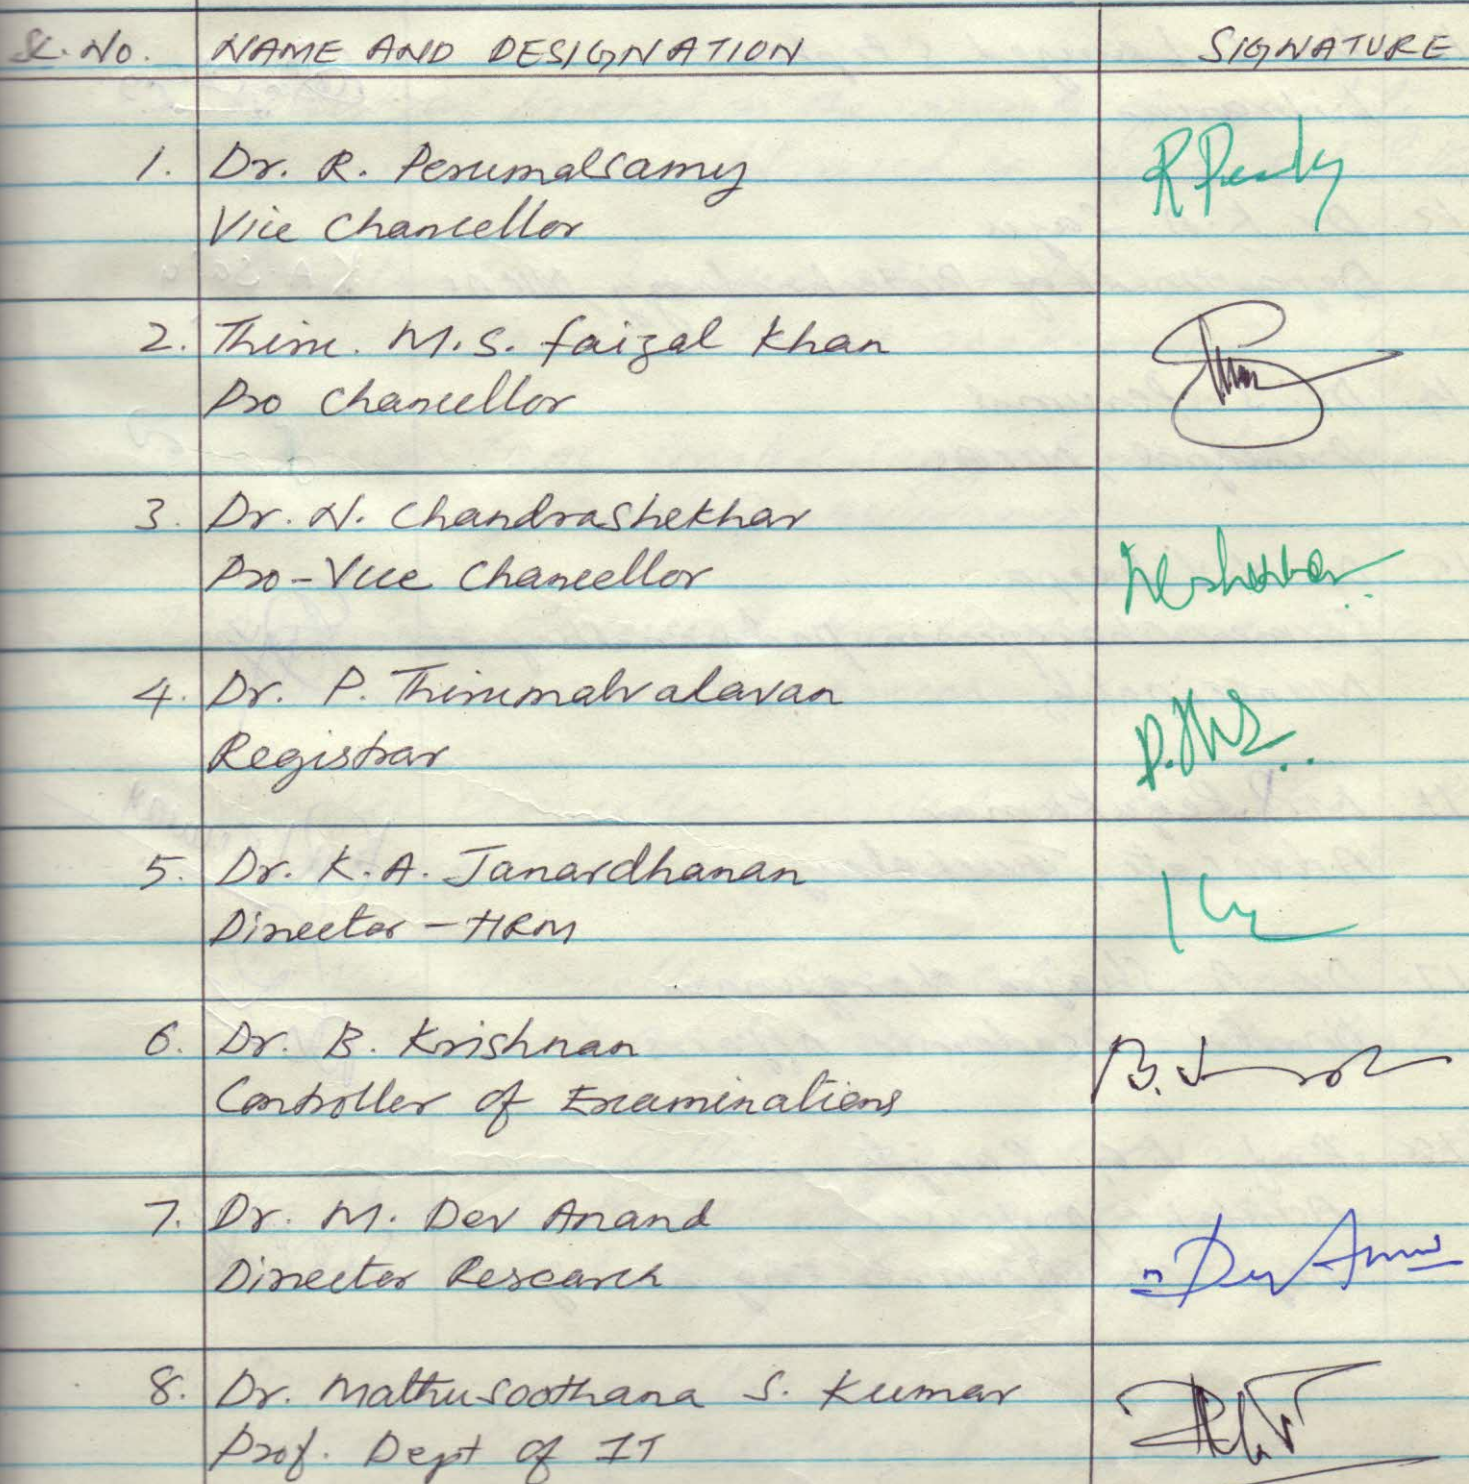 Sl. No. NAME AND DESIGNATION SIGNATURE
1. Dr. R. Perumalsamy
Vice Chancellor
2. Thiru. M.S. Faizal Khan
Pro Chancellor
3. Dr. N. Chandrashekhar
Pro-Vice Chancellor
4. Dr. P. Thirumalvalavan
Registrar
5. Dr. K.A. Janardhanan
Director - HRM
6. Dr. B. Krishnan
Controller of Examinations
7. Dr. M. Dev Anand
Director Research
8. Dr. Mathusoothana S. Kumar
Prof. Dept of IT